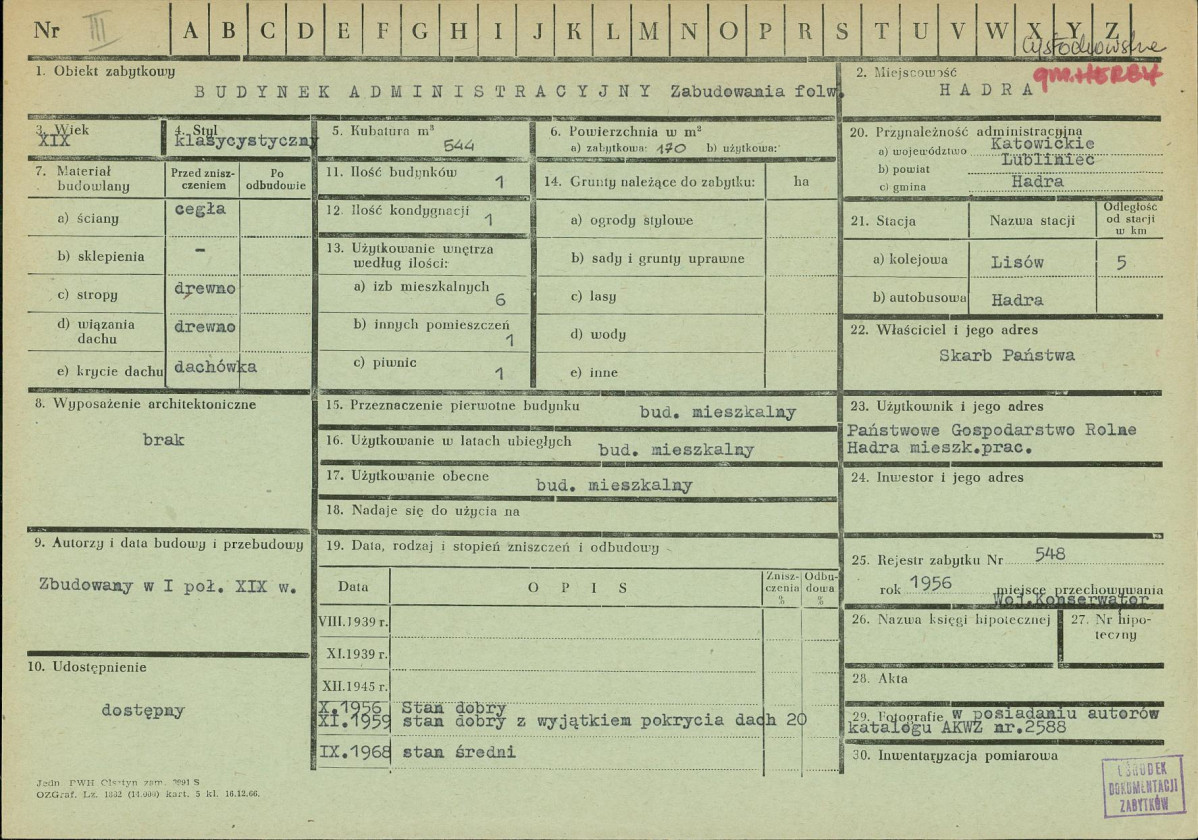 Nr III A B C D E F G H I J K L M N O P R S T U V W X Y Z
częstochowskie
gm. HERBY
1. Obiekt zabytkowy
BUDYNEK ADMINISTRACYJNY Zabudowania folw.
2. Miejscowość
HADRA
3. Wiek
XIX
4. Styl
klasycystyczny
5. Kubatura m³
544
6. Powierzchnia w m²
a) zabytkowa: 170 b) użytkowa:
7. Materiał budowlany
Przed zniszczeniem
Po odbudowie
a) ściany cegła
b) sklepienia –
c) stropy drewno
d) wiązania dachu drewno
e) krycie dachu dachówka
11. Ilość budynków 1
12. Ilość kondygnacji 1
13. Użytkowanie wnętrza
według ilości:
a) izb mieszkalnych 6
b) innych pomieszczeń 1
c) piwnic 1
14. Grunty należące do zabytku: ha
a) ogrody stylowe
b) sady i grunty uprawne
c) lasy
d) wody
e) inne
20. Przynależność administracyjna
a) województwo Katowickie
b) powiat Lubliniec
c) gmina Hadra
21. Stacja Nazwa stacji Odległość od stacji w km
a) kolejowa Lisów 5
b) autobusowa Hadra
22. Właściciel i jego adres
Skarb Państwa
8. Wyposażenie architektoniczne
brak
15. Przeznaczenie pierwotne budynku bud. mieszkalny
16. Użytkowanie w latach ubiegłych bud. mieszkalny
17. Użytkowanie obecne bud. mieszkalny
18. Nadaje się do użycia na
23. Użytkownik i jego adres
Państwowe Gospodarstwo Rolne
Hadra mieszk.prac.
24. Inwestor i jego adres
9. Autorzy i data budowy i przebudowy
Zbudowany w I poł. XIX w.
19. Data, rodzaj i stopień zniszczeń i odbudowy
Data OPIS Zniszczenia % Odbudowa %
VIII.1939 r.
XI.1939 r.
XII.1945 r.
X.1956 Stan dobry
XI.1959 stan dobry z wyjątkiem pokrycia dach 20
IX.1968 stan średni
25. Rejestr zabytku Nr 548
rok 1956 miejsce przechowywania
Woj.Konserwator
26. Nazwa księgi hipotecznej
27. Nr hipoteczny
28. Akta
29. Fotografie w posiadaniu autorów
katalogu AKWZ nr.2588
30. Inwentaryzacja pomiarowa
10. Udostępnienie
dostępny
Jedn. PWH Olsztyn zam. 2991 S
OZGraf. Lz. 1882 (14.000) kart. 5 kl. 16.12.66.
OŚRODEK
DOKUMENTACJI
ZABYTKÓW